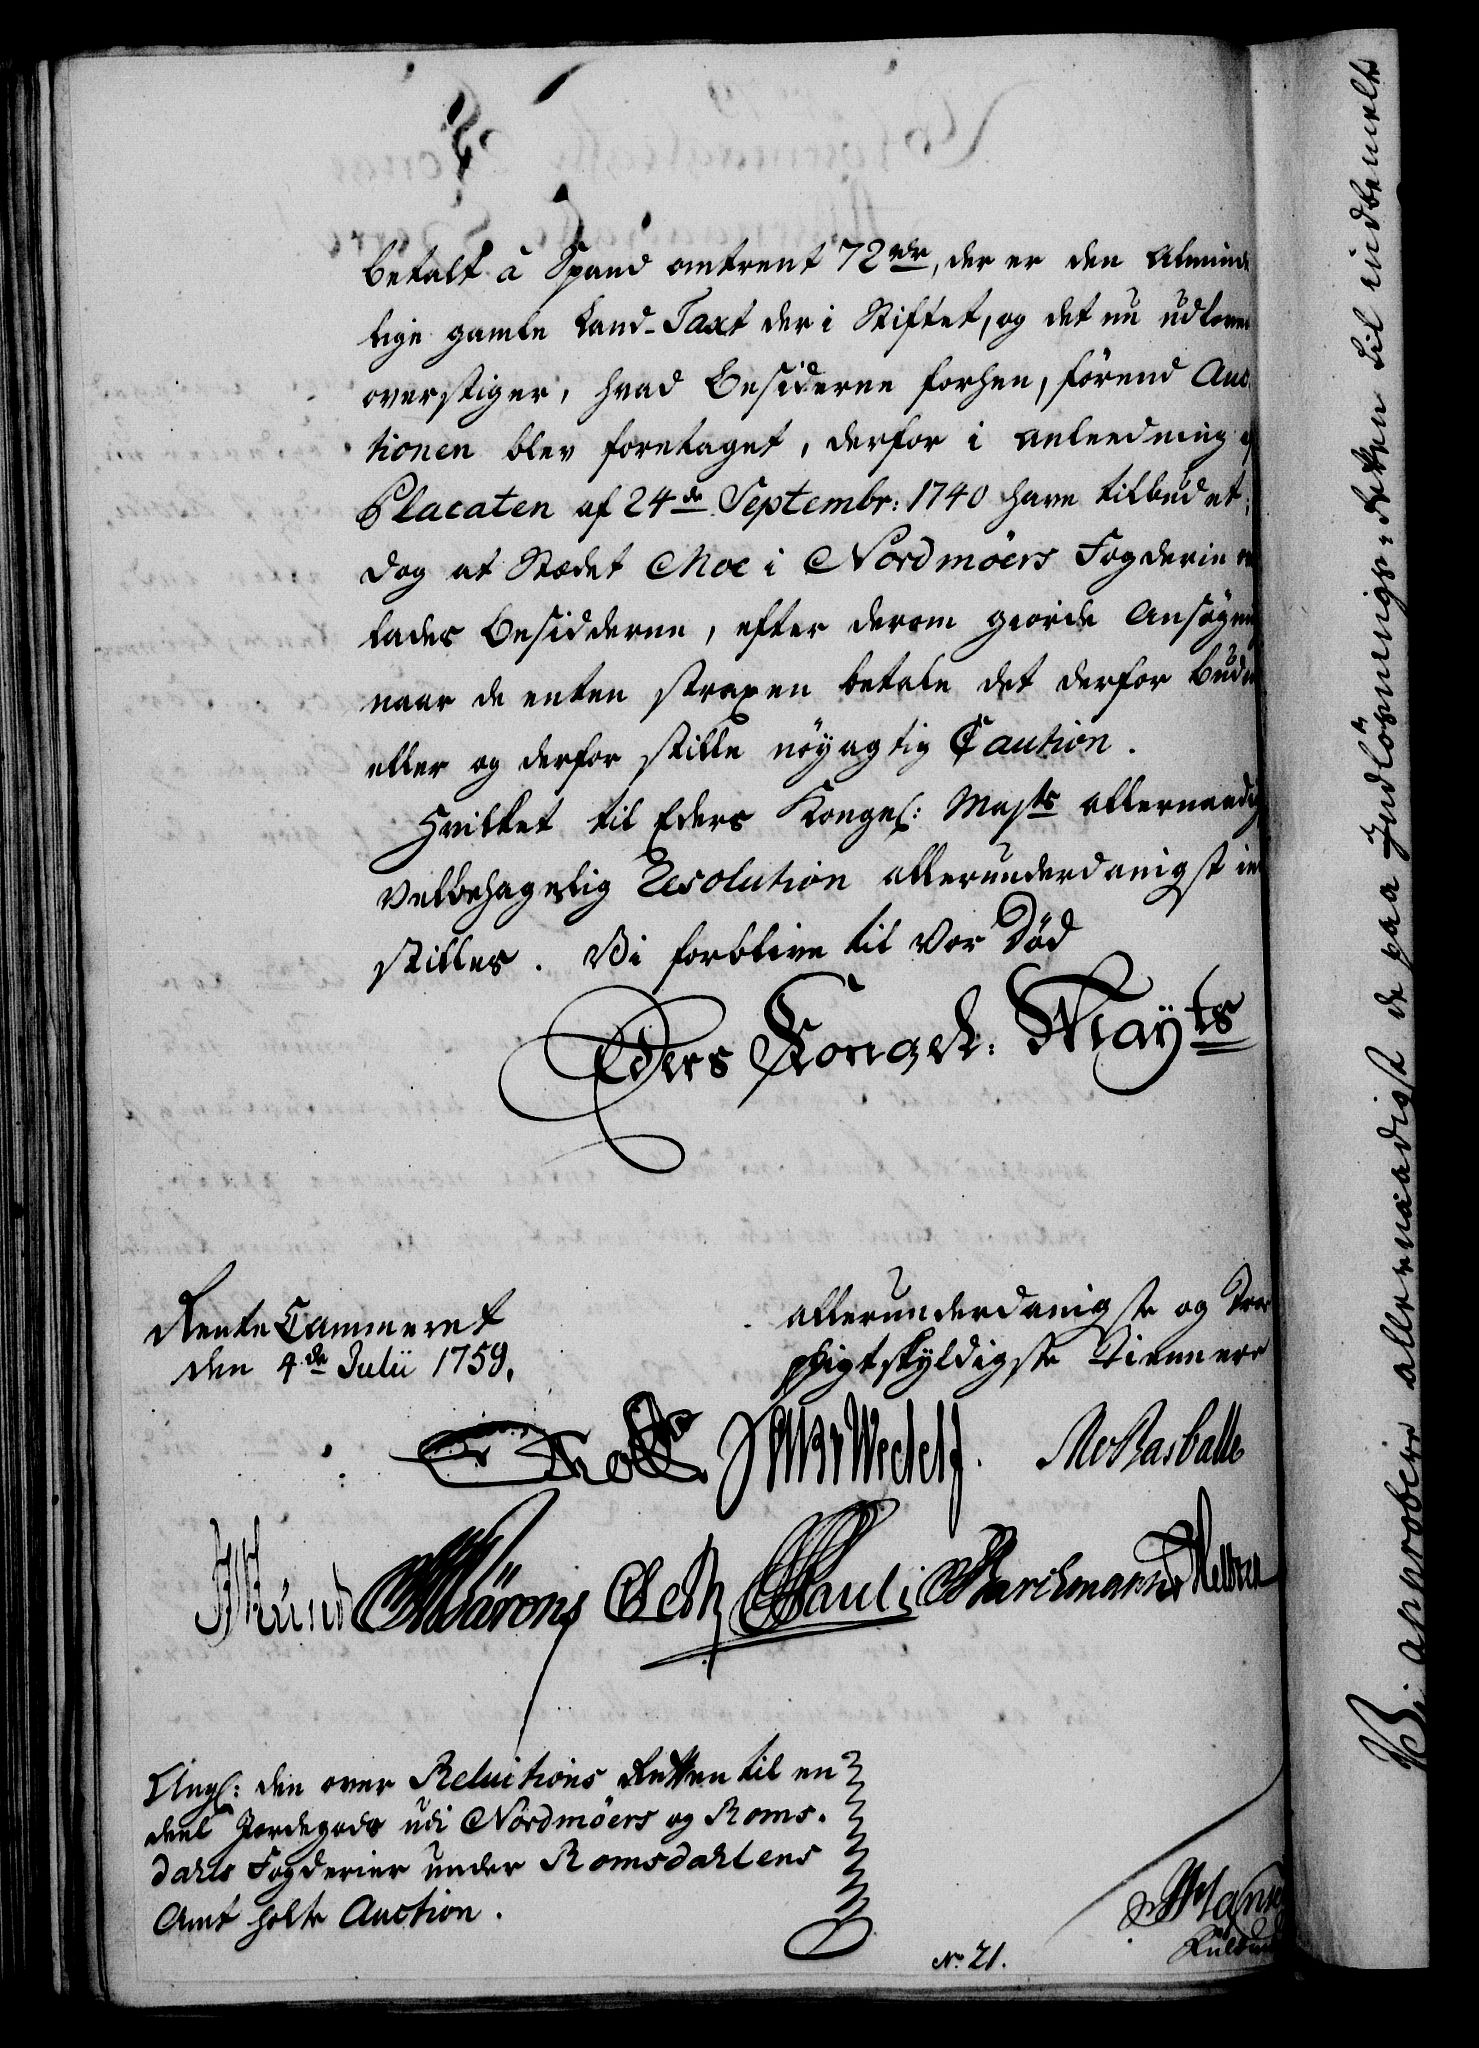 betalt â Spand omtrent 72 rdr, der er den Alminde
lige gamle Land-Taxt der i Stiftet, og det nu udlovede
overstiger, hvad Besiderne forhen, førend Auc
tionen blev foretaget, derfor i anleedning af
Placaten af 24de Septembr: 1740 have tilbudet;
Dog at Stædet Moe i Nordmöers Fogderie
lades Besidderne, efter derom giorde Ansøgning
naar de enten straxen betale det derfor budne
eller og derfor stille nöyagtig Caution.
Hvilket til Eders Kongel: Majts allernaadigst
Velbehagelig Resolution allerunderdanigst ind
stilles. Vi forblive til vor Død
Eders Kongel: Mayts
Rente Cammeret
den 4de Julii 1759.
allerunderdanigste og Troe
pligtskyldigste Tiennere
Wedell
Rasballe
Pauli
Barchmann
Ang: den over Reluitions Retten til en
deel Jordegods udi Nordmöers og Roms-
dahls Fogderier under Romsdahlens
Amt holte Auction.
No. 21.
Vi approbere allernaadigst de paa Jndlösnings-Retten til indbemelte